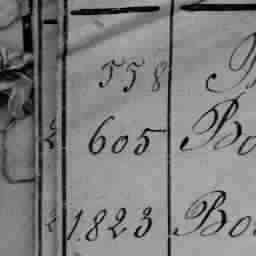 558 B
605 Bo
1823 Bo